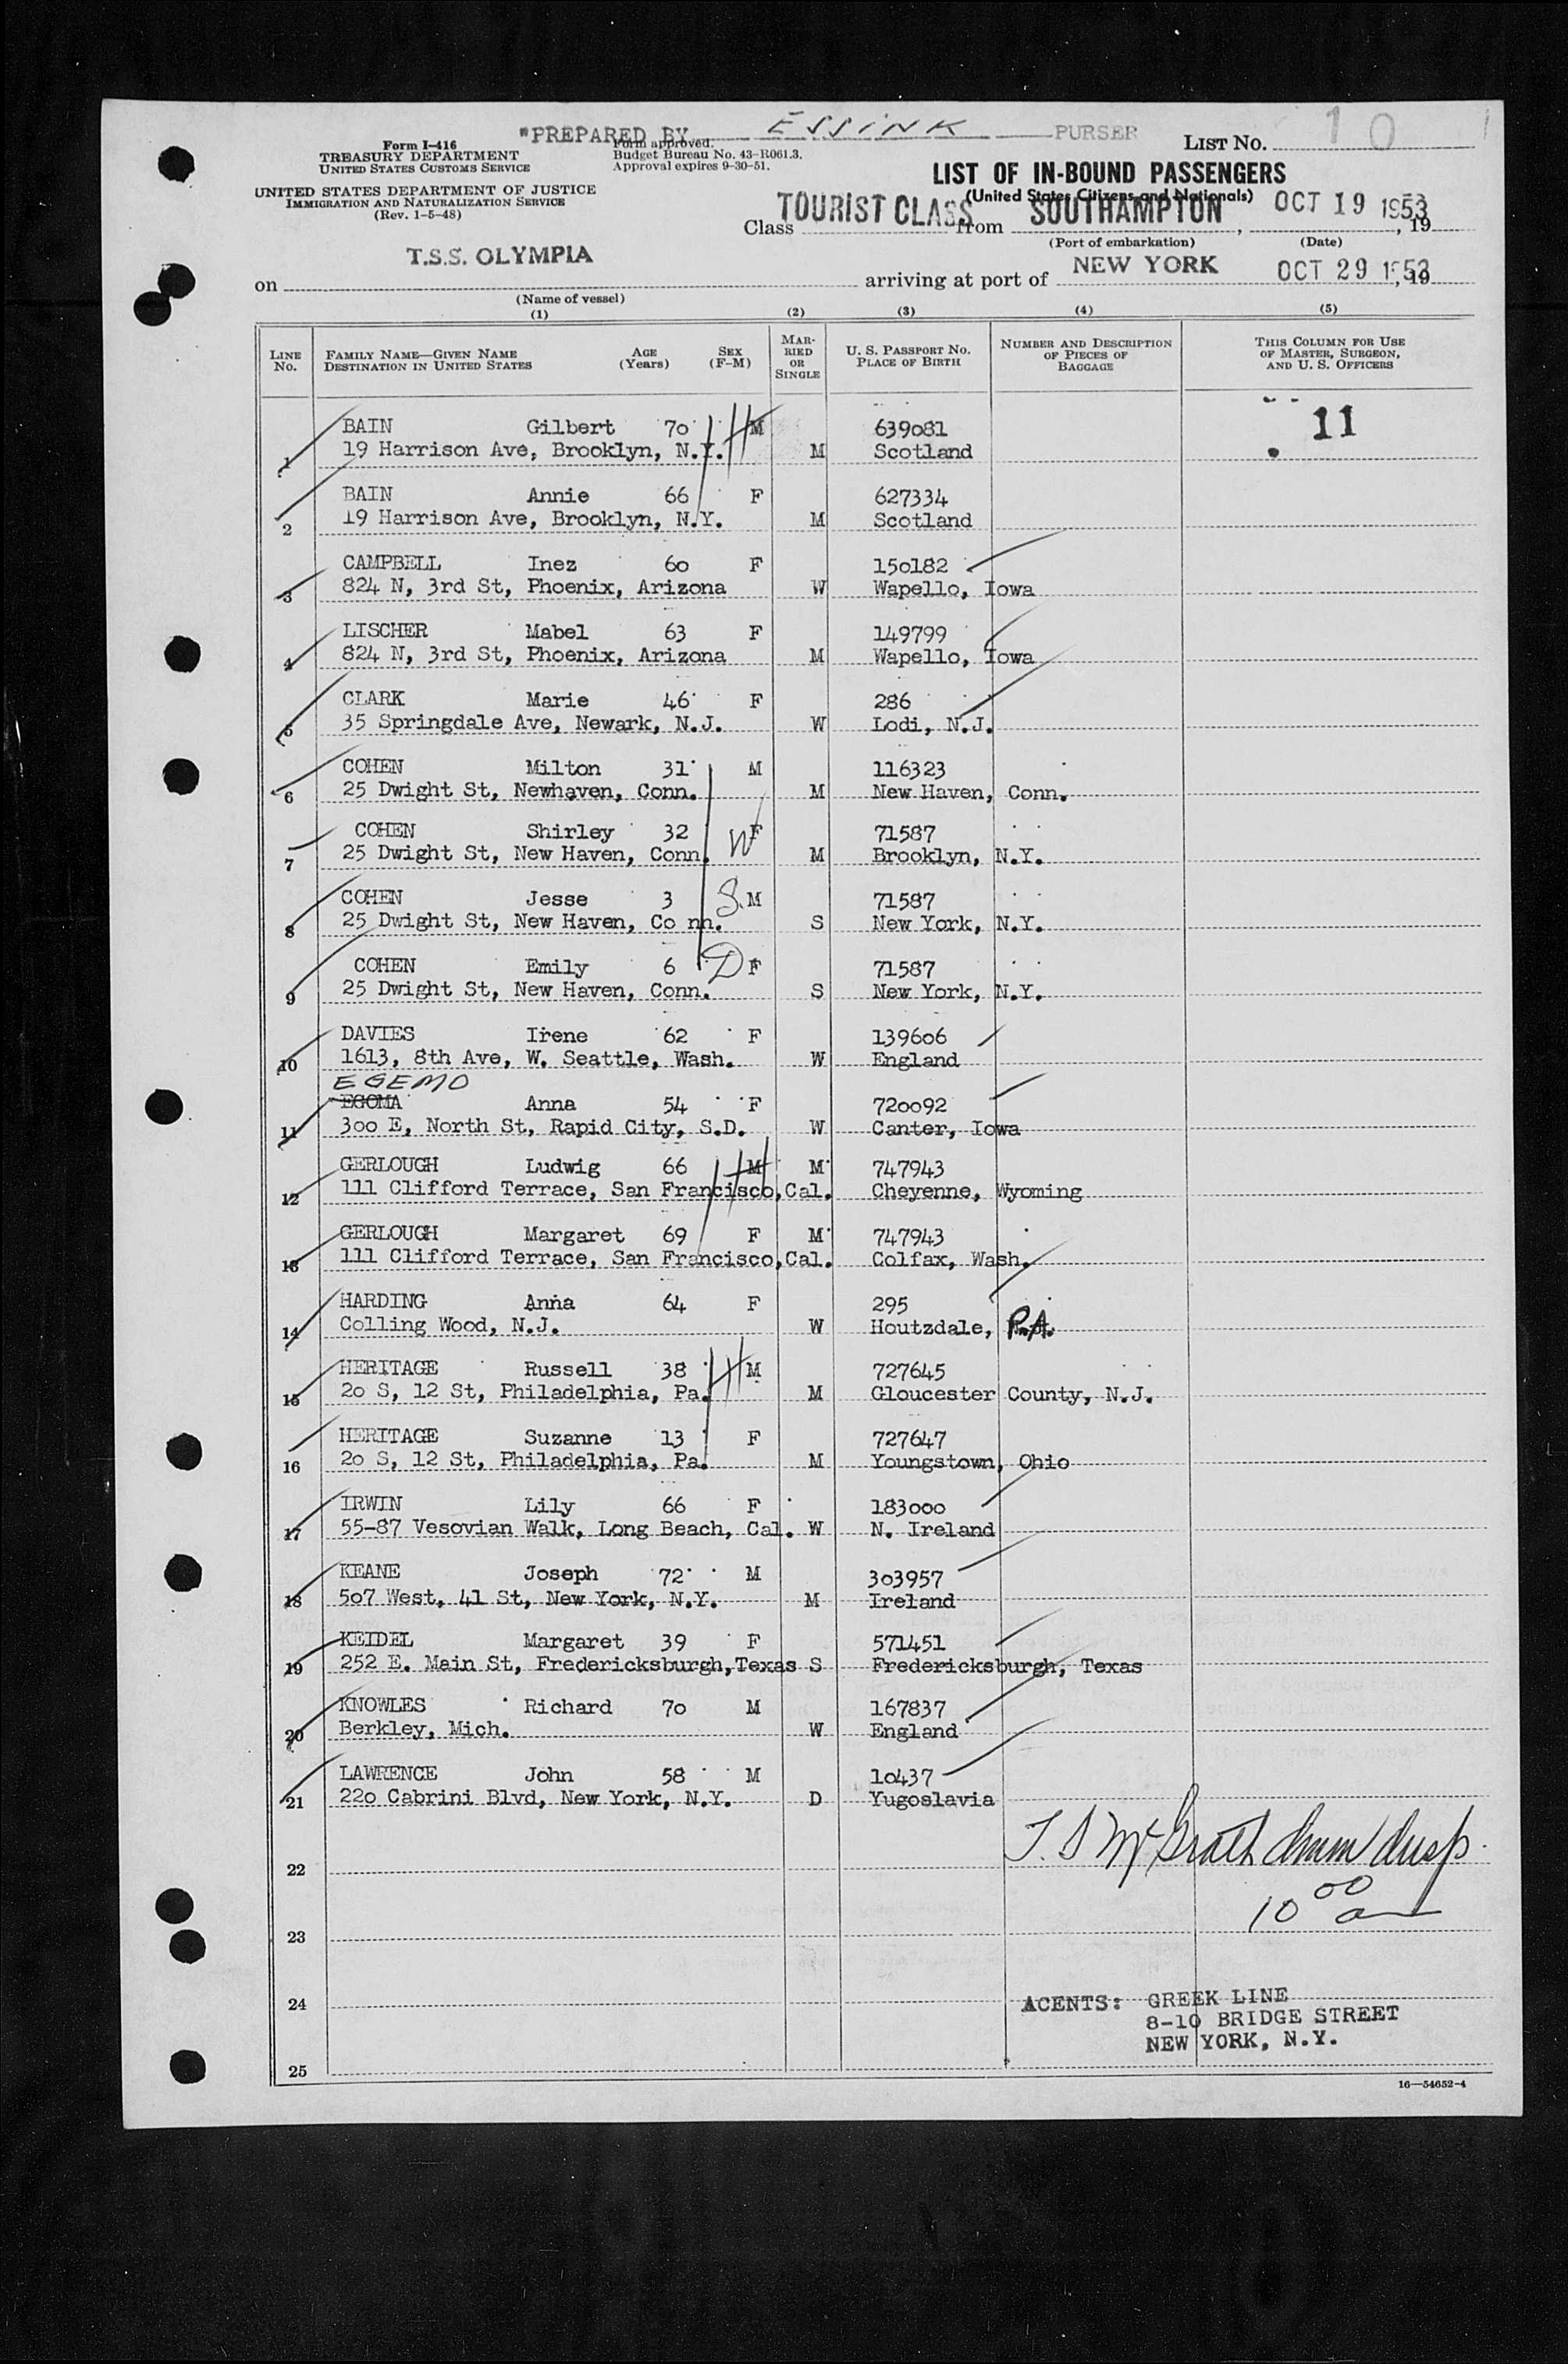 "PREPARED BY ESSINK PURSER
Form I-416
TREASURY DEPARTMENT
UNITED STATES CUSTOMS SERVICE
UNITED STATES DEPARTMENT OF JUSTICE
IMMIGRATION AND NATURALIZATION SERVICE
(Rev. 1-5-48)
Form approved.
Budget Bureau No. 43-R061.3.
Approval expires 9-30-51.
LIST No. 10
LIST OF IN-BOUND PASSENGERS
(United States Citizens and Nationals)
Class TOURIST CLASS from SOUTHAMPTON, OCT 19 1953, 19
(Port of embarkation) (Date)
on T.S.S. OLYMPIA arriving at port of NEW YORK OCT 29 1953, 19
(Name of vessel)
(1) (2) (3) (4) (5)
LINE No. FAMILY NAME—GIVEN NAME DESTINATION IN UNITED STATES AGE (Years) SEX (F-M) MARRIED OR SINGLE U. S. PASSPORT NO. PLACE OF BIRTH NUMBER AND DESCRIPTION OF PIECES OF BAGGAGE THIS COLUMN FOR USE OF MASTER, SURGEON, AND U. S. OFFICERS
BAIN Gilbert 70 H M 639081 11
1 19 Harrison Ave, Brooklyn, N.Y. M Scotland
BAIN Annie 66 F 627334
2 19 Harrison Ave, Brooklyn, N.Y. M Scotland
CAMPBELL Inez 60 F 150182
3 824 N, 3rd St, Phoenix, Arizona W Wapello, Iowa
LISCHER Mabel 63 F 149799
4 824 N, 3rd St, Phoenix, Arizona M Wapello, Iowa
CLARK Marie 46 F 286
5 35 Springdale Ave, Newark, N.J. W Lodi, N.J.
COHEN Milton 31 M 116323
6 25 Dwight St, Newhaven, Conn. M New Haven, Conn.
COHEN Shirley 32 W F 71587
7 25 Dwight St, New Haven, Conn. M Brooklyn, N.Y.
COHEN Jesse 3 S M 71587
8 25 Dwight St, New Haven, Co nn. S New York, N.Y.
COHEN Emily 6 D F 71587
9 25 Dwight St, New Haven, Conn. S New York, N.Y.
DAVIES Irene 62 F 139606
10 1613, 8th Ave, W. Seattle, Wash. W England
EGEMO
EGOMA Anna 54 F 720092
11 300 E, North St, Rapid City, S.D. W Canter, Iowa
GERLOUGH Ludwig 66 H M M 747943
12 111 Clifford Terrace, San Francisco,Cal. Cheyenne, Wyoming
GERLOUGH Margaret 69 F M 747943
13 111 Clifford Terrace, San Francisco,Cal. Colfax, Wash.
HARDING Anna 64 F 295
14 Colling Wood, N.J. W Houtzdale, P.A.
HERITAGE Russell 38 H M 727645
15 20 S, 12 St, Philadelphia, Pa. M Gloucester County, N.J.
HERITAGE Suzanne 13 F 727647
16 20 S, 12 St, Philadelphia, Pa. M Youngstown, Ohio
IRWIN Lily 66 F 183000
17 55-87 Vesovian Walk, Long Beach, Cal. W N. Ireland
KEANE Joseph 72 M 303957
18 507 West, 41 St, New York, N.Y. M Ireland
KEIDEL Margaret 39 F 571451
19 252 E. Main St, Fredericksburgh,Texas S Fredericksburgh, Texas
KNOWLES Richard 70 M 167837
20 Berkley, Mich. W England
LAWRENCE John 58 M 10437
21 220 Cabrini Blvd, New York, N.Y. D Yugoslavia
22 McGrath
10 00
23
24 AGENTS: GREEK LINE
8-10 BRIDGE STREET
NEW YORK, N.Y.
25
16—54652-4